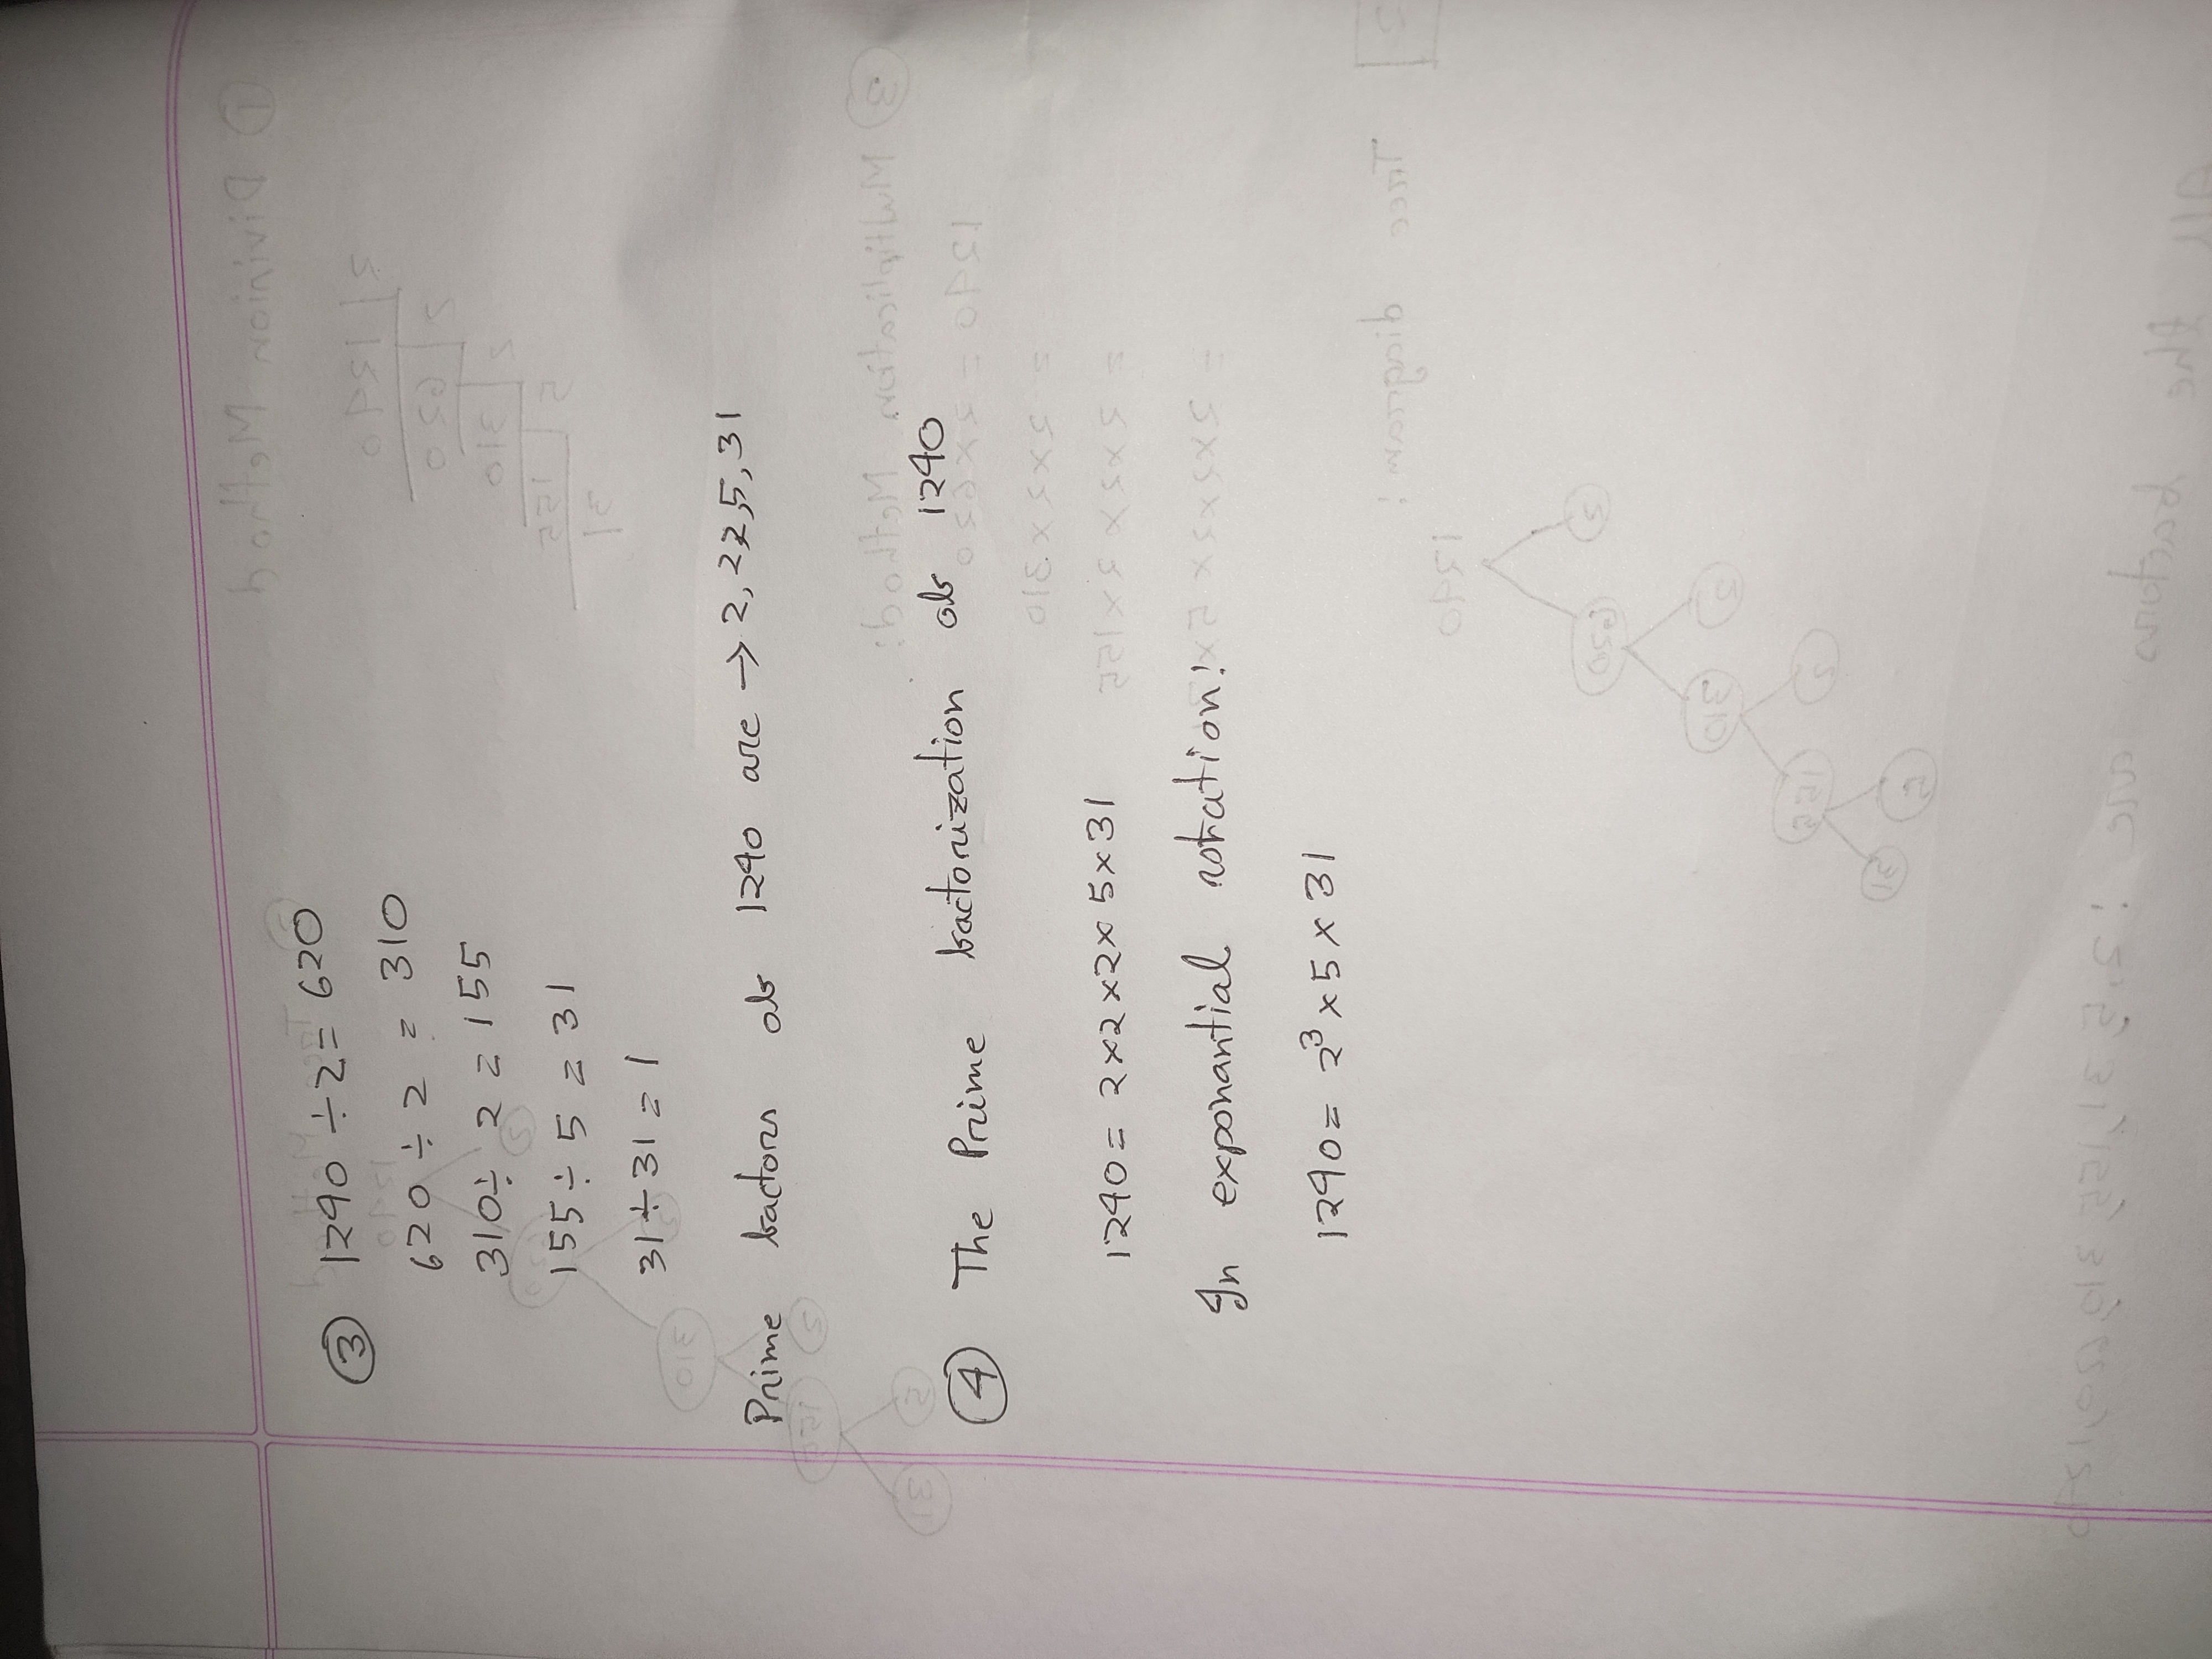 ③ 1240 ÷ 2 = 620
620 ÷ 2 = 310
310 ÷ 2 = 155
155 ÷ 5 = 31
31 ÷ 31 = 1
Prime factors of 1240 are → 2, 2, 2, 5, 31
④ The Prime factorization of 1240
1240 = 2 x 2 x 2 x 5 x 31
In exponantial notation:
1240 = 2³ x 5 x 31